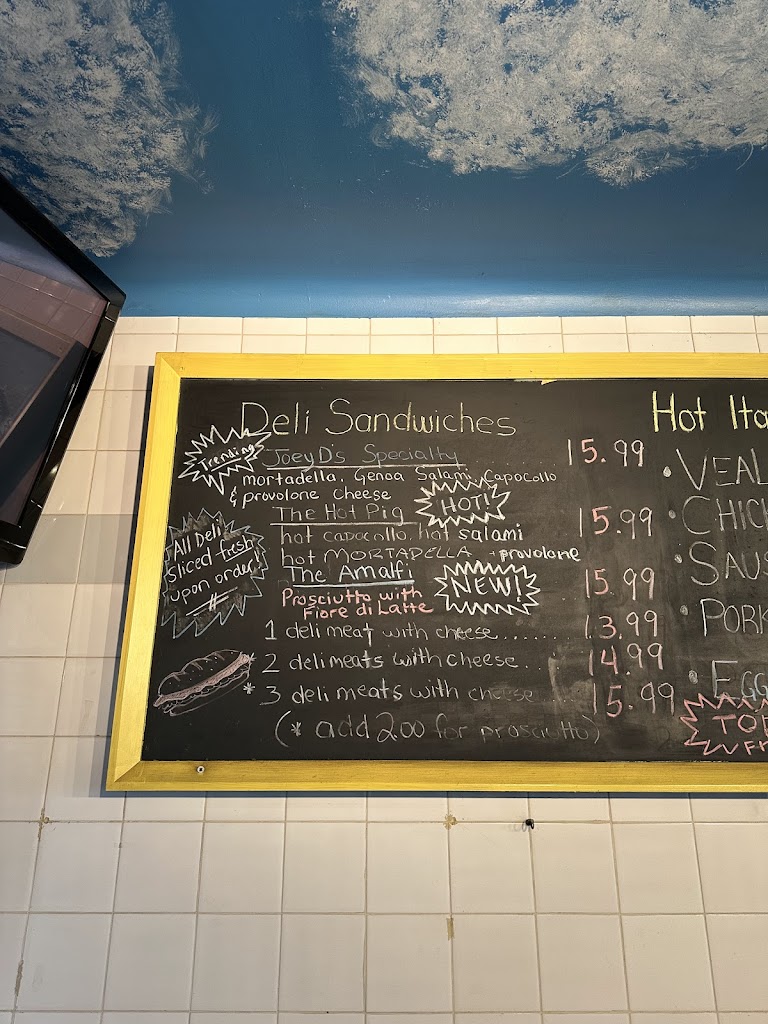 Deli Sandwiches
Trending
JoeyD's Specialty 15.99
mortadella, Genoa Salami, Capocollo
& provolone cheese
HOT!
The Hot Pig 15.99
hot capocollo, hot salami
hot MORTADELLA + provolone
All Deli
sliced fresh
upon order!
The Amalfi 15.99
NEW!
Prosciutto with
Fiore di Latte
1 deli meat with cheese...... 13.99
2 deli meats with cheese... 14.99
* 3 deli meats with cheese 15.99
(* add 200 for prosciutto)
Hot Ita
• VEAL
• CHICK
• SAUS
• PORK
• EGG
TO